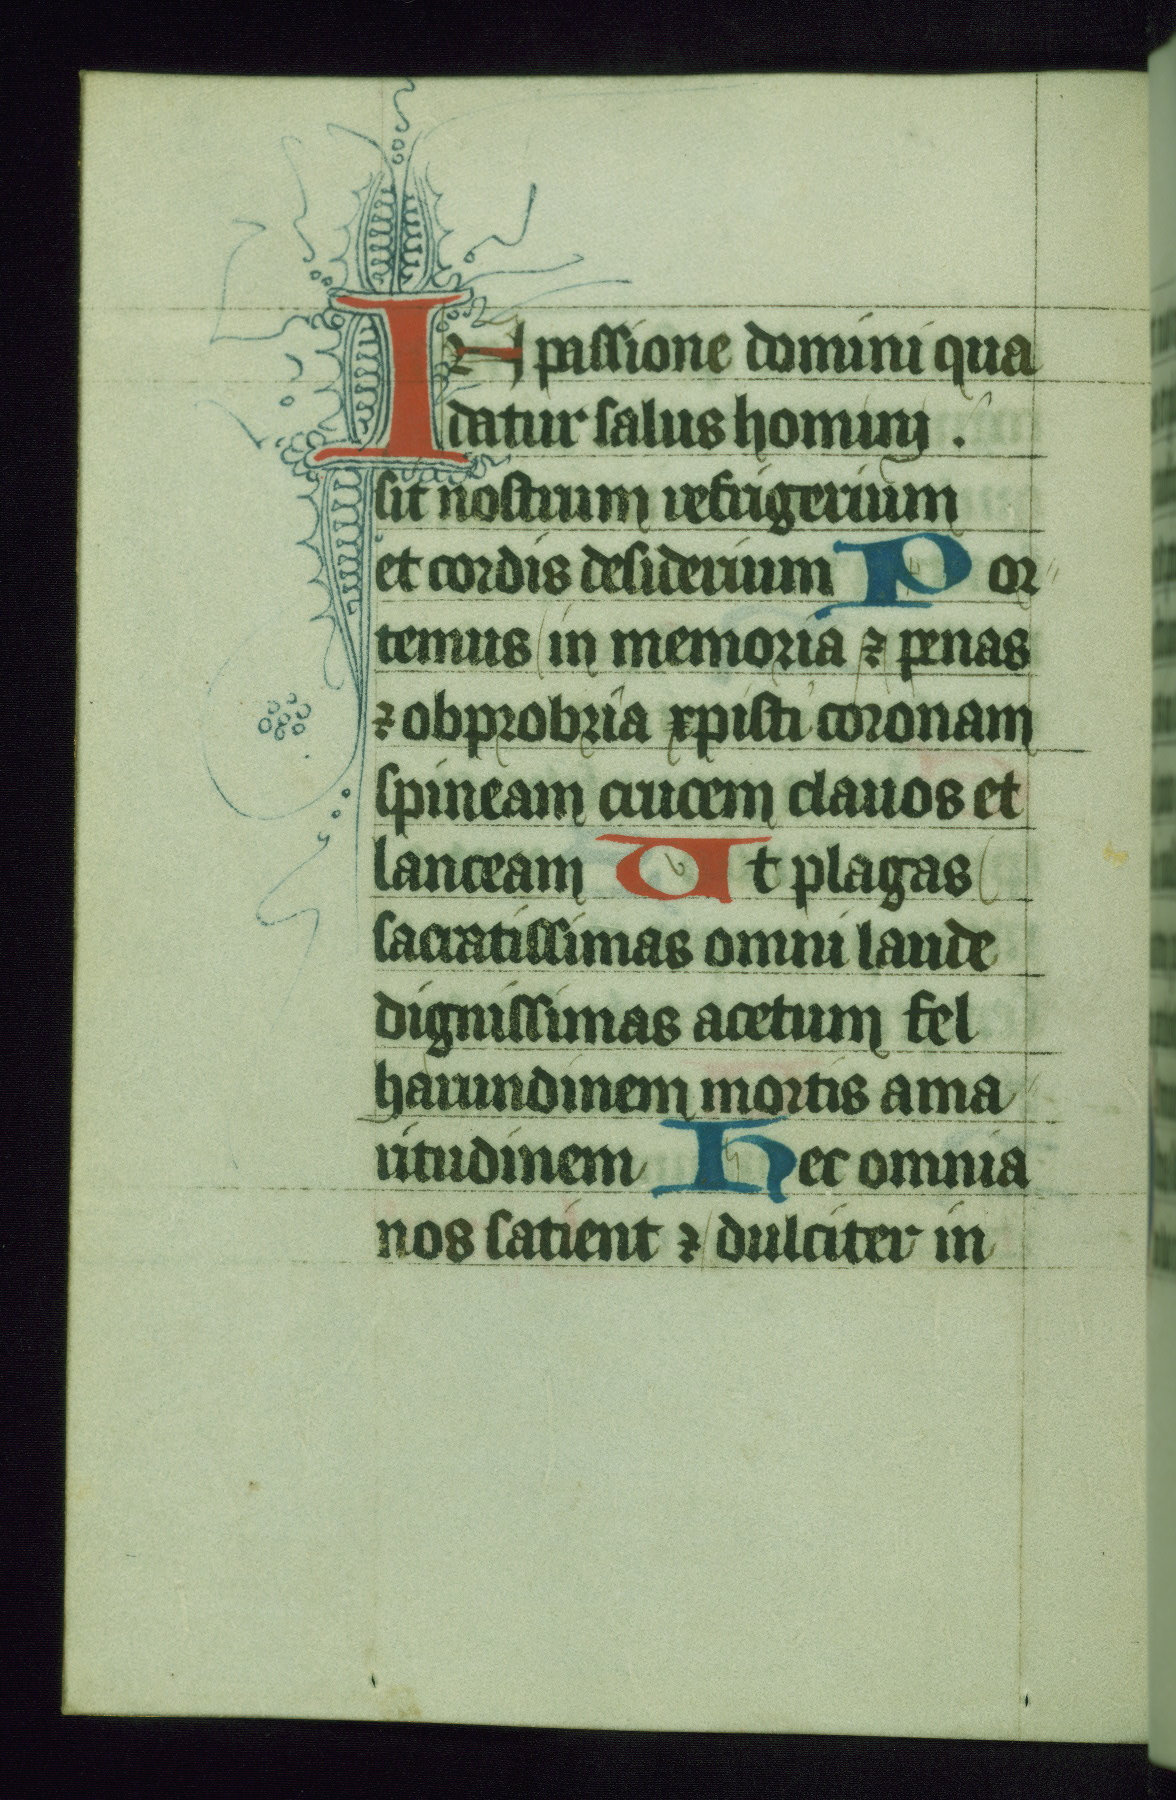 IN passione domini qua
datur salus hominj .
sit nostrum refrigerium
et cordis desiderium Por
temus in memoria ⁊ penas
⁊ obprobria xpisti coronam
spineam crucem clauos et
lanceam Ut plagas
sacratissimas omni laude
dignissimas acetum fel
harundinem mortis ama
ritudinem Hec omnia
nos satient ⁊ dulciter in